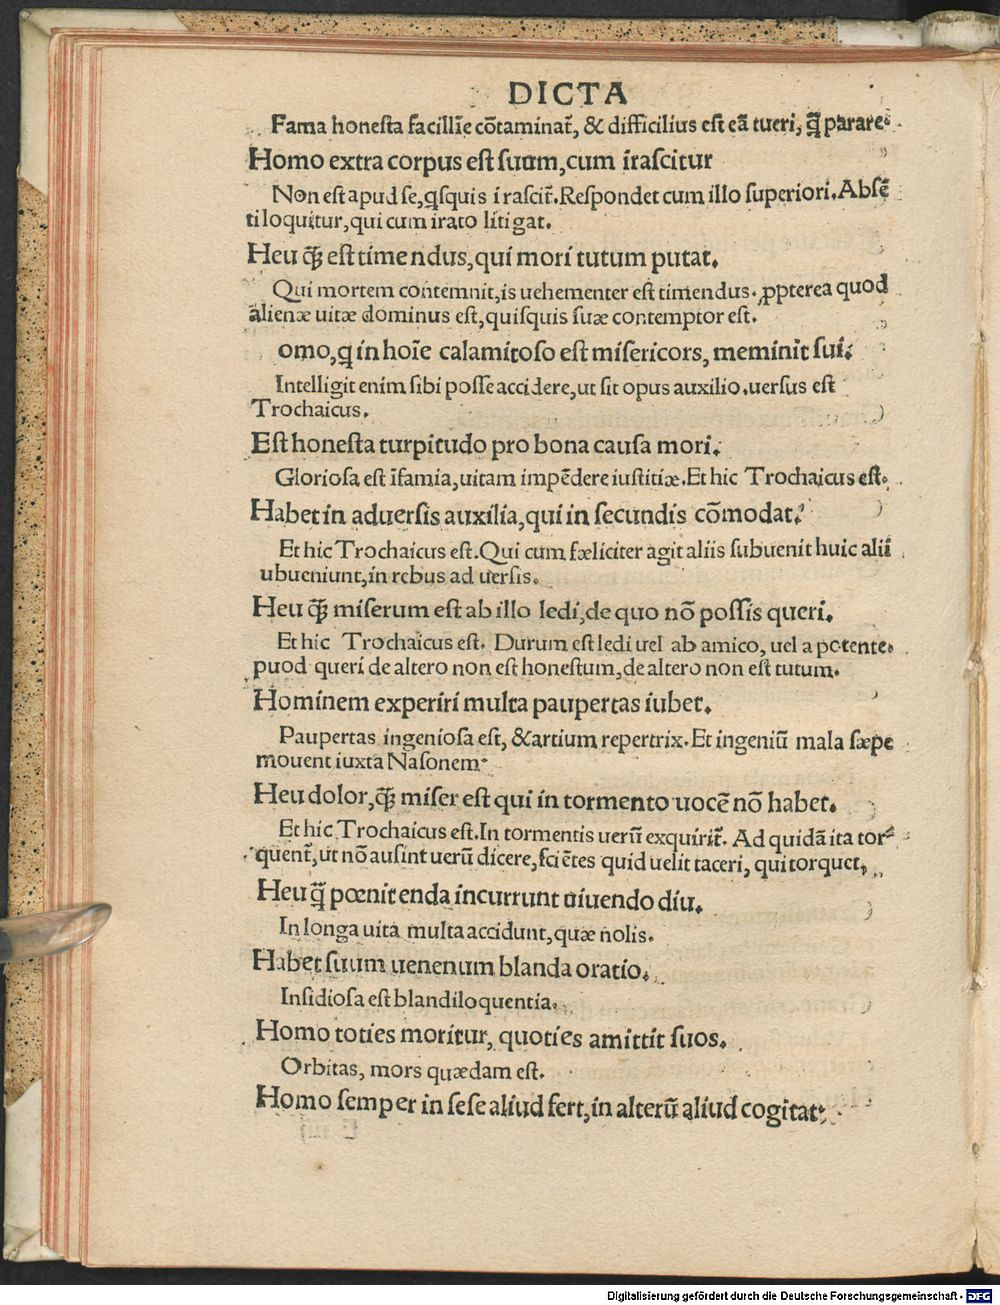 DICTA
Fama honesta facillīe cōtaminat̄, & difficilius est eā tueri, q̄ parare.
Homo extra corpus est suum, cum irascitur
Non est apud se, qsquis irascit̄. Respondet cum illo superiori. Absē
ti loquitur, qui cum irato litigat.
Heu q̄ȝ est timendus, qui mori tutum putat.
Qui mortem contemnit, is uehementer est timendus. ꝓpterea quod
alienæ uitæ dominus est, quisquis suæ contemptor est.
omo, q in hoīe calamitoso est misericors, meminit sui.
Intelligit enim sibi posse accidere, ut sit opus auxilio. uersus est
Trochaicus.
Est honesta turpitudo pro bona causa mori.
Gloriosa est īfamia, uitam impēdere iustitiæ. Et hic Trochaicus est.
Habet in aduersis auxilia, qui in secundis cōmodat.
Et hic Trochaicus est. Qui cum fæliciter agit aliis subuenit huic alii
ubueniunt, in rebus ad uersis.
Heu q̄ȝ miserum est ab illo ledi, de quo nō possis queri.
Et hic Trochaicus est. Durum est ledi uel ab amico, uel a potente.
puod queri de altero non est honestum, de altero non est tutum.
Hominem experiri multa paupertas iubet.
Paupertas ingeniosa est, & artium repertrix. Et ingeniū mala sæpe
mouent iuxta Nasonem.
Heu dolor, q̄ȝ miser est qui in tormento uocē nō habet.
Et hic Trochaicus est. In tormentis uerū exquirit̄. Ad quidā ita tor
quent̄, ut nō ausint uerū dicere, sciētes quid uelit taceri, qui torquet,
Heu q̄ pœnitenda incurrunt uiuendo diu.
In longa uita multa accidunt, quæ nolis.
Habet suum uenenum blanda oratio.
Insidiosa est blandiloquentia.
Homo toties moritur, quoties amittit suos.
Orbitas, mors quædam est.
Homo semper in sese aliud fert, in alterū aliud cogitat.
Digitalisierung gefördert durch die Deutsche Forschungsgemeinschaft - DFG